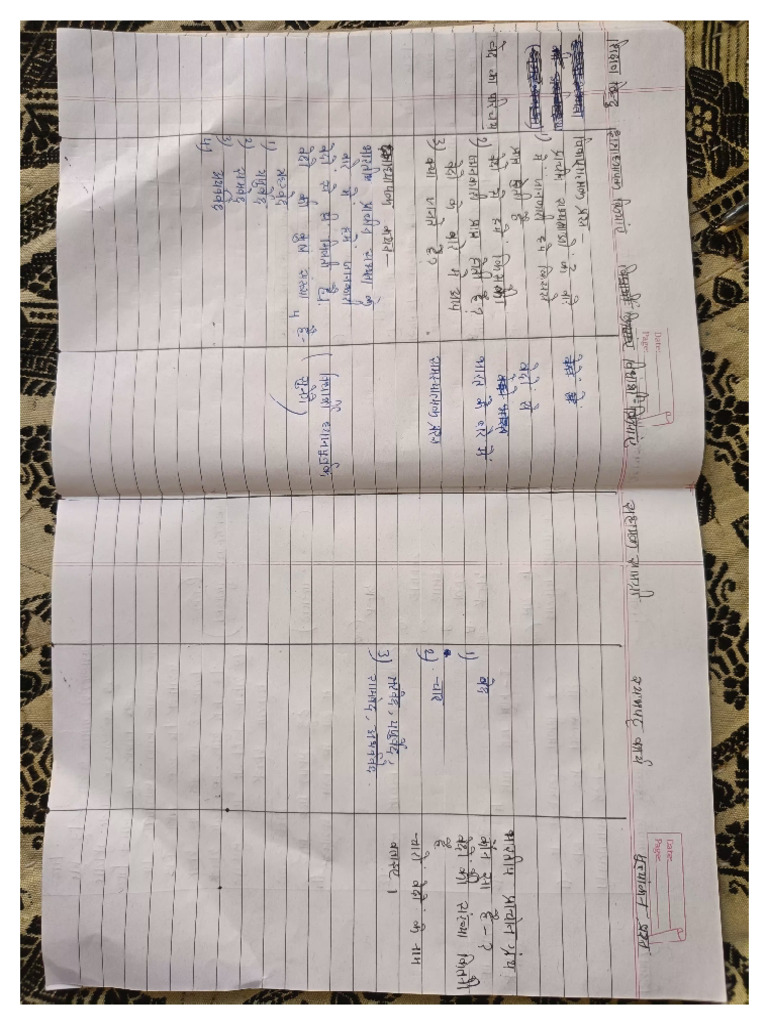 Date:
Page:
Date:
Page:
शिक्षण बिन्दु
छात्राध्यापक क्रियाएं
विद्यार्थी क्रियाएं
सहायक सामग्री
श्यामपट्ट कार्य
मूल्यांकन प्रश्न
वेद का परिचय
विकासात्मक प्रश्न
1)
में जानकारी हमें किससे
प्राप्त होती है
2) वेदों से हमें किसकी
जानकारी प्राप्त होती है?
3) वेदों के बारे में आप
क्या जानते है?
कथन—
भारतीय प्राचीन सभ्यता के
बारे में हमें जानकारी
वेदों से ही मिलती है।
वेदों की कुल संख्या 4 है-
1) ऋग्वेद
2) यजुर्वेद
3) सामवेद
4) अथर्ववेद
वेदों से
भारत के बारे में
समस्यात्मक प्रश्न
(विद्यार्थी ध्यानपूर्वक
सुनेंगे)
1) वेद
2) चार
3) ऋग्वेद, यजुर्वेद,
सामवेद, अथर्ववेद
भारतीय प्राचीन ग्रंथ
कौन सा है-?
वेदों की संख्या कितनी
है
चारों वेदों के नाम
बताइए।